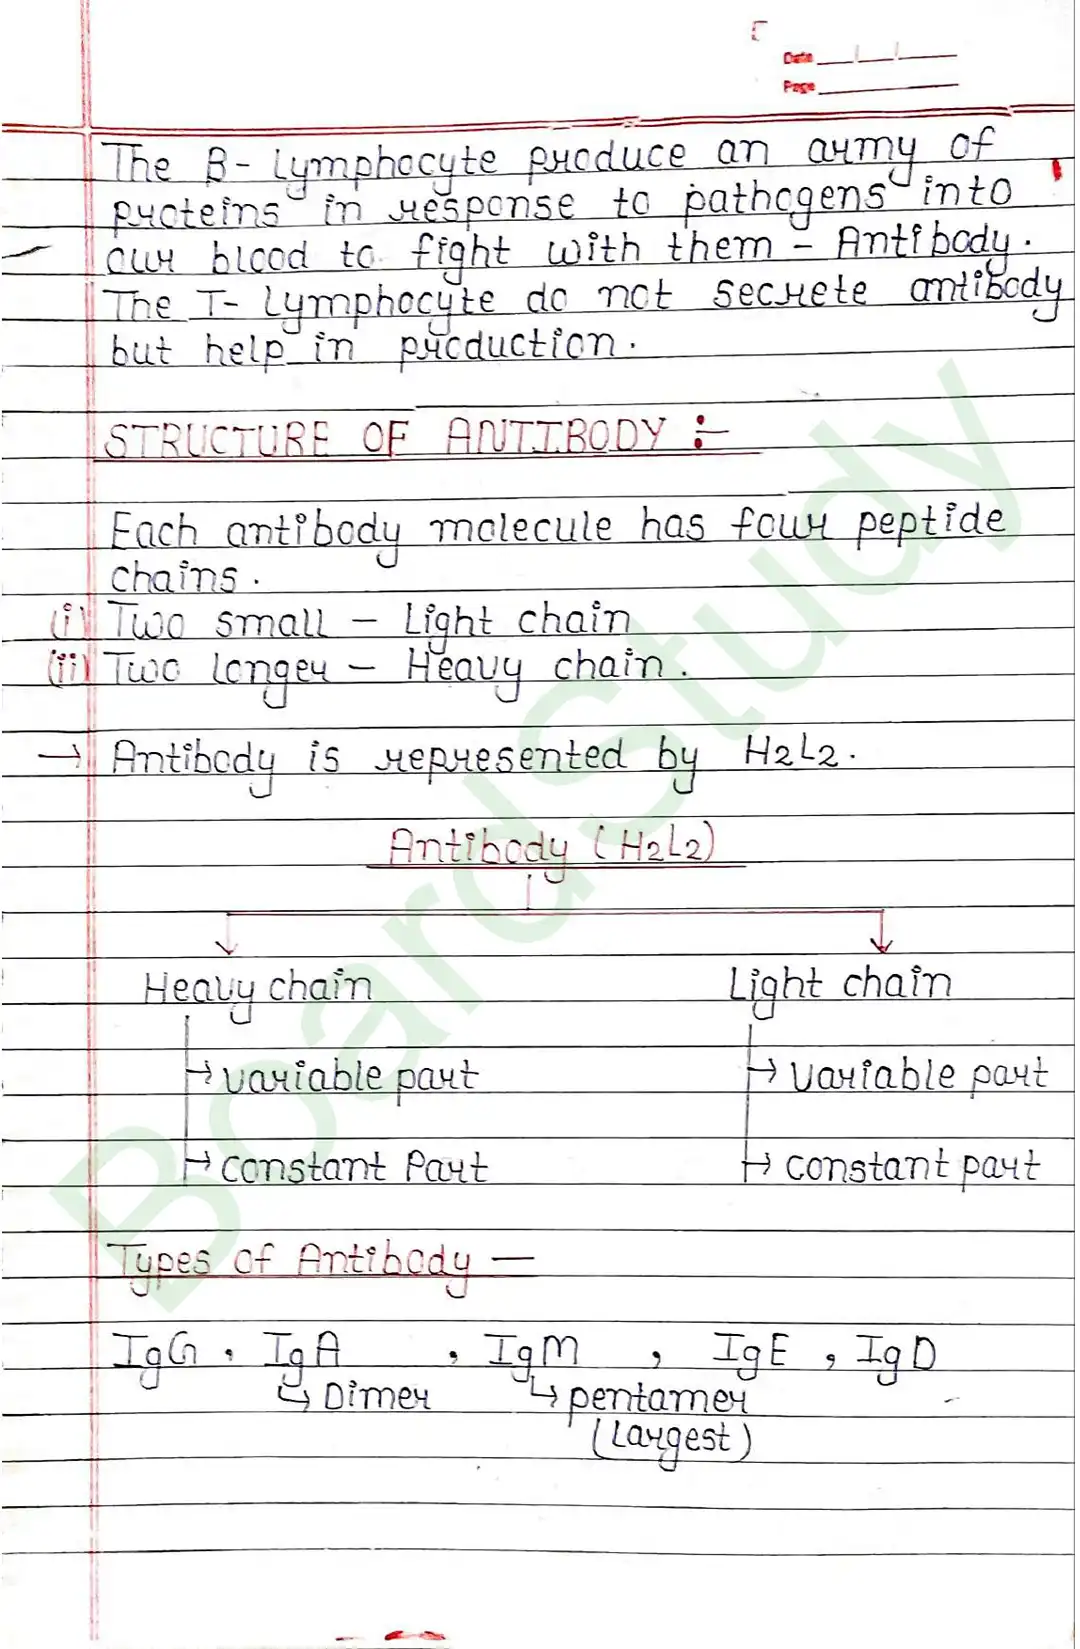 Date
Page
The B- Lymphocyte produce an army of
proteins in response to pathogens into
our blood to fight with them - Antibody.
The T- Lymphocyte do not secrete antibody
but help in production.
STRUCTURE OF ANTIBODY :-
Each antibody molecule has four peptide
chains.
(i) Two small - Light chain
(ii) Two longer - Heavy chain.
→ Antibody is represented by H2L2.
Antibody (H2L2)
Heavy chain Light chain
→ variable part → variable part
→ constant Part → constant part
Types of Antibody -
IgG, IgA, IgM, IgE, IgD
↳ Dimer ↳ pentamer
(Largest)
BoardStudy